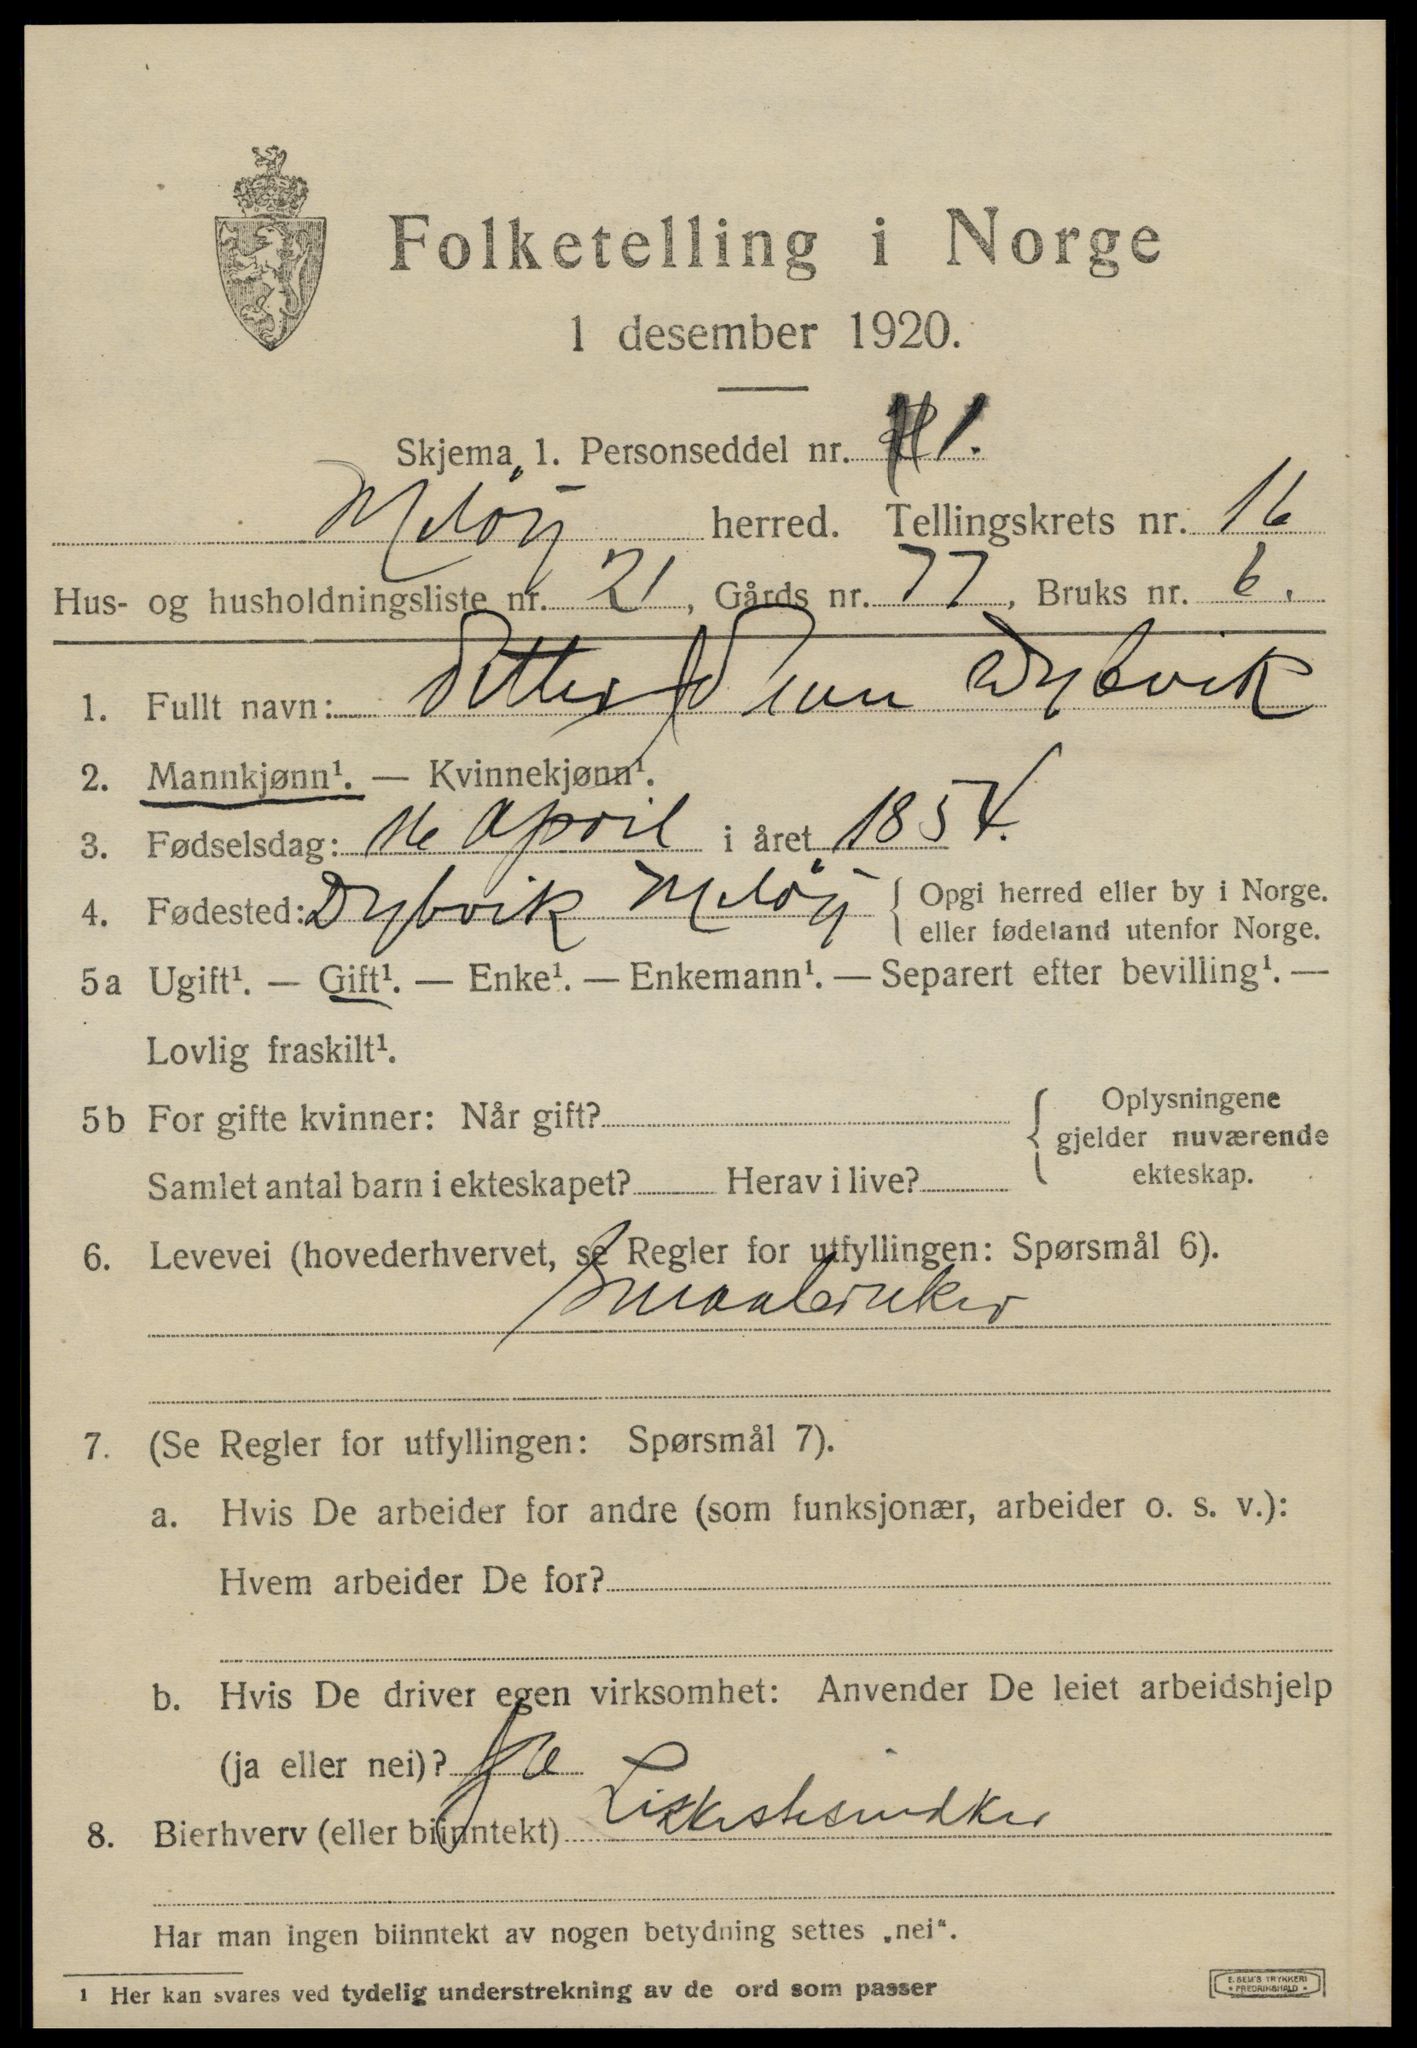 Folketelling i Norge
1 desember 1920.
Skjema 1. Personseddel nr. 1.
Meløy herred. Tellingskrets nr. 16
Hus- og husholdningsliste nr. 21, Gårds nr. 77, Bruks nr. 6.
1. Fullt navn: Petter Dybvik
2. Mannkjønn¹. — Kvinnekjønn¹.
3. Fødselsdag: 16 April i året 1854.
4. Fødested: Dybvik Meløy { Opgi herred eller by i Norge.
eller fødeland utenfor Norge.
5a Ugift¹. — Gift¹. — Enke¹. — Enkemann¹. — Separert efter bevilling¹. —
Lovlig fraskilt¹.
5b For gifte kvinner: Når gift? { Oplysningene
gjelder nuværende
Samlet antal barn i ekteskapet? Herav i live? ekteskap.
6. Levevei (hovederhvervet, se Regler for utfyllingen: Spørsmål 6).
Smaabruker
7. (Se Regler for utfyllingen: Spørsmål 7).
a. Hvis De arbeider for andre (som funksjonær, arbeider o. s. v.):
Hvem arbeider De for?
b. Hvis De driver egen virksomhet: Anvender De leiet arbeidshjelp
(ja eller nei)? Ja
8. Bierhverv (eller biinntekt)
Har man ingen biinntekt av nogen betydning settes „nei“.
1 Her kan svares ved tydelig understrekning av de ord som passer
E. SEM'S TRYKKERI
FREDRIKSHALD